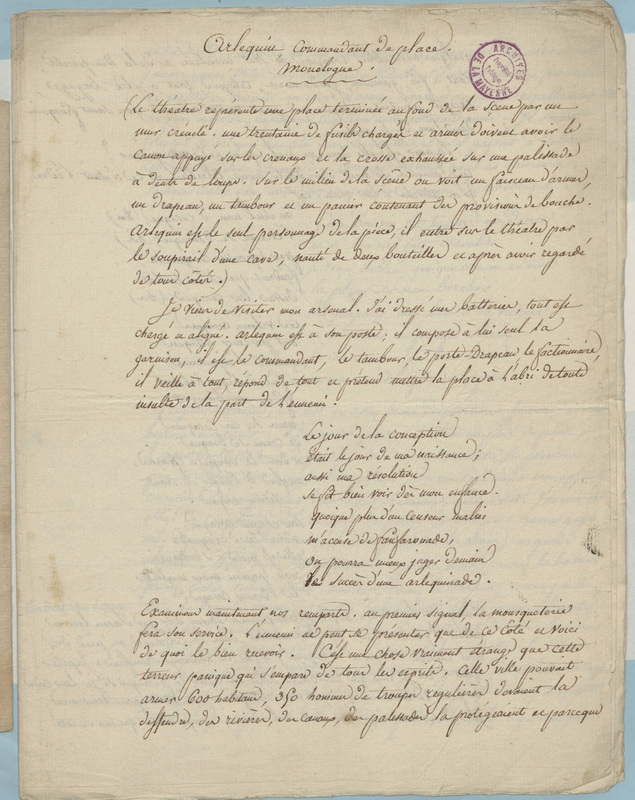 Arlequin Commandant de place.
Monologue.
ARCHIVES
DE LA MAYENNE
(Le théatre représente une place terminée au fond de la scene par un
mur crenelé; une trentaine de fusils chargés et armés doivent avoir le
canon appuyé sur les crenaux et la crosse exhaussée sur une palissade
à dents de loups. Sur le milieu de la scêne on voit un faisceau d'armes,
un drapeau, un tambour et un panier contenant des provisions de bouche.
Arlequin est le seul personnage de la pièce, il entre sur le théatre par
le soupirail d'une cave, nanti de deux bouteilles et après avoir regardé
de tous côtés.)
Je viens de visiter mon arsenal. J'ai dressé mes batteries, tout est
chargé et aligné. arlequin est à son poste; il compose à lui seul la
garnison, il est le commandant, le tambour, le porte Drapeau, le factionnaire,
il veille à tout, répond de tout et prétend mettre la place à l'abri de toute
insulte de la part de l'ennemi.
Le jour de la conception
était le jour de ma naissance;
aussi ma résolution
se fit bien voir dès mon enfance.
quoique plus d'un censeur malin
m'accuse de fanfaronade,
on pourra mieux juger demain
le succès d'une arlequinade.
Examinons maintenant nos remparts. au premier signal la mousqueterie
fera son service. L'ennemi ne peut se présenter que de ce côté et voici
de quoi le bien recevoir. C'est une chose vraiment étrange que cette
terreur panique qui s'empare de tous les esprits. Cette ville pouvait
armer 600 habitans, 350 hommes de troupes regulières devaient la
deffendre, des rivières, des canaux, des palissades la protégeaient et parceque